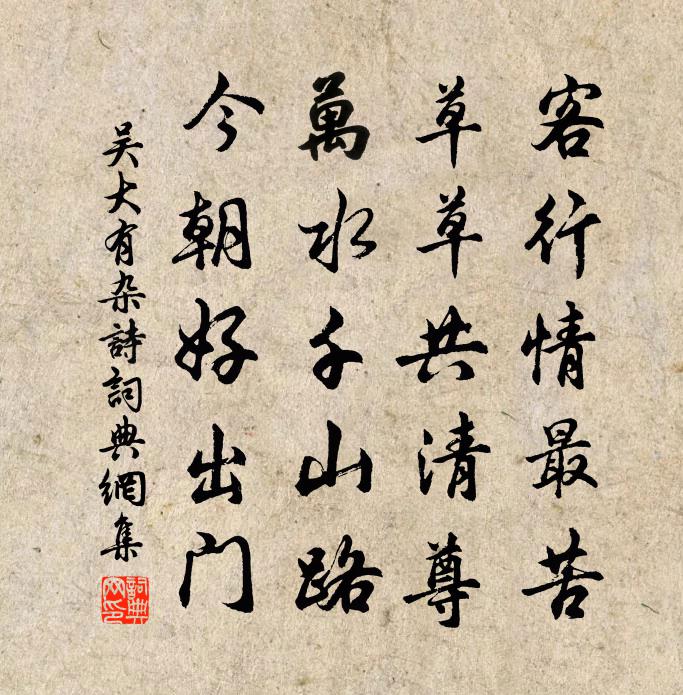 客行情最苦
草草共清尊
萬水千山路
今朝好出門
吴大有杂詩詞典網集
詞典网印